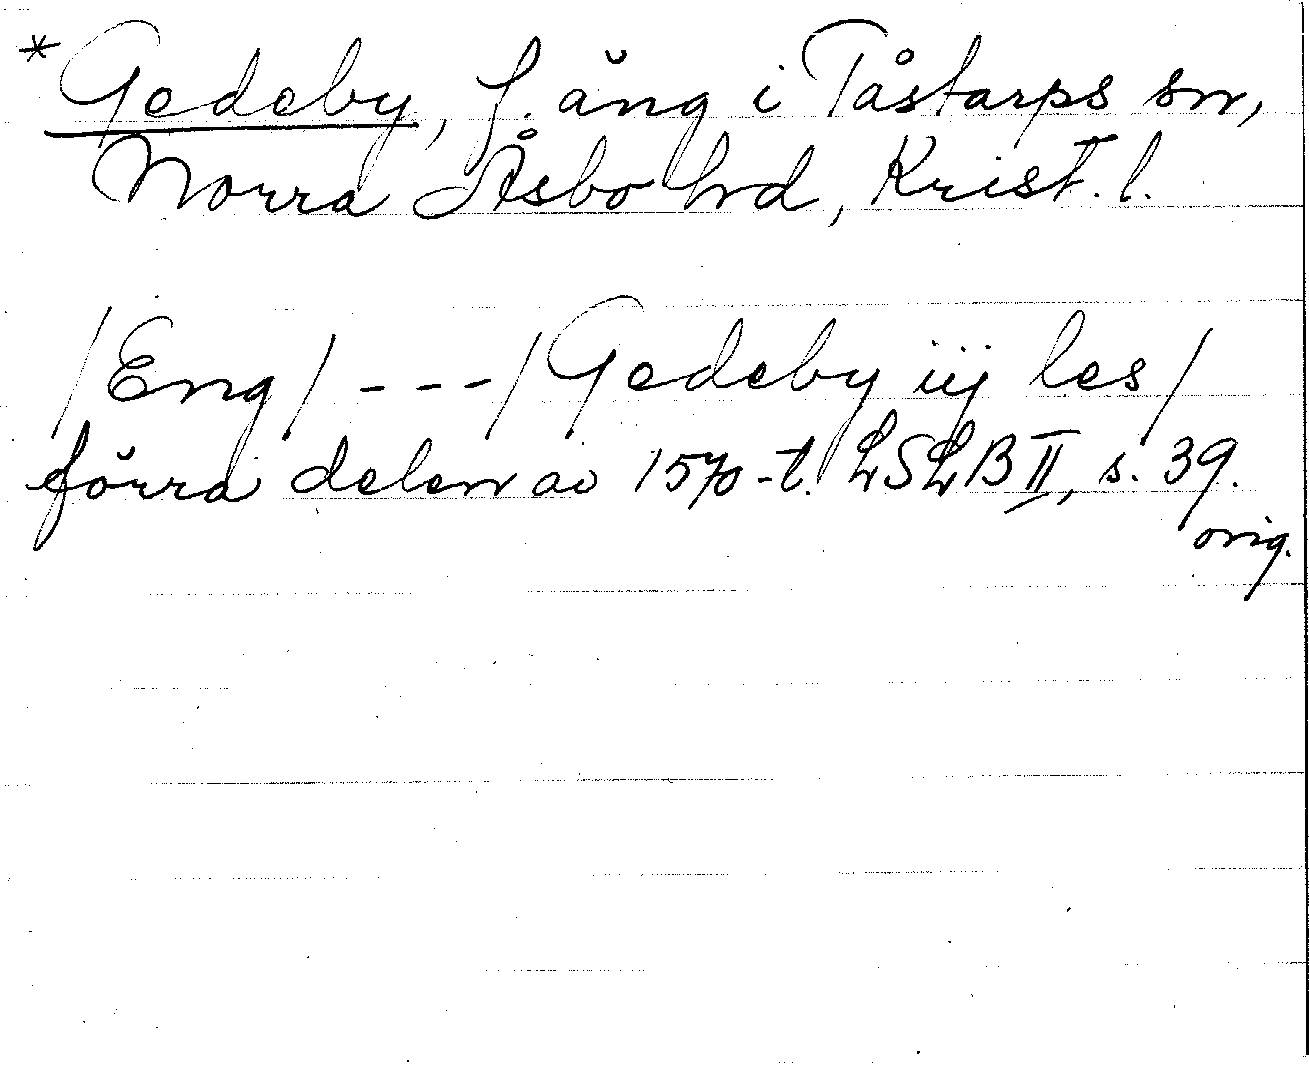 *Gedeby, f. äng i Tåstarps sn,
Norra Åsbo hd, Krist. l.
/Eng/ - - - /Gedeby iij les/
förra delen av 1570-t. LSLB II, s. 39.
orig.